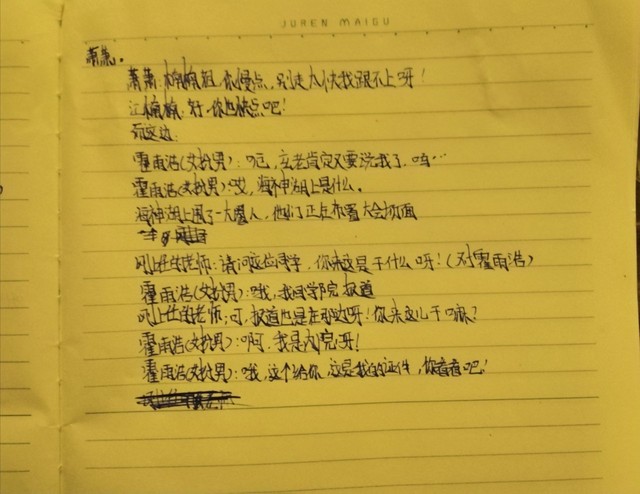 JUREN MAIGU
萧萧。
萧萧:楠楠姐,你慢点,别走太快我跟不上呀!
江楠楠:好,你也快点吧!
而这边:
霍雨浩(女扮男):呃,玄老肯定又要说我了,呜…
霍雨浩(女扮男):哎,海神湖上是什么。
海神湖上围了一大圈人,他们正在布置大会场面
刚上任的老师:请问这位同学,你来这是干什么呀!(对霍雨浩)
霍雨浩(女扮男):哦,我回学院报道
刚上任的老师:可,报道也是在那边呀!你来这儿干嘛?
霍雨浩(女扮男):啊,我是内院呀!
霍雨浩(女扮男):哦,这个给你,这是我的证件,你看看吧!